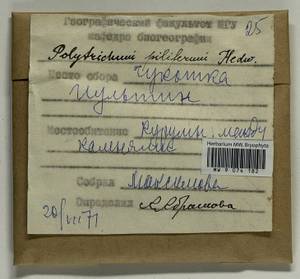 Географический факультет МГУ
кафедра биогеографии
25
Polytrichum piliferum Hedw.
Место сбора Чукотка
Иультин
Местообитание Курумы, между
камнями
Herbarium MW, Bryophyta
MW 9 074 182
Собрал Максимова
20/VII 71
Определила Абрамова